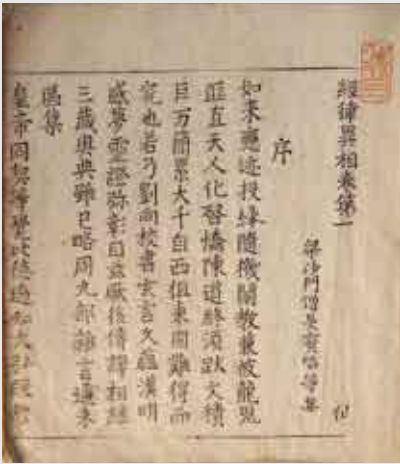 經律異相卷第一
梁沙門僧旻寶唱等集
序
如來應迹投緣隨機闡教兼被龍鬼
匪直天人化啓憍陳道終須跋文積
巨万簡累大千自西徂東固難得而
究也若乃劉向校書玄言久蘊漢明
感夢靈證弥彰自兹厥後傳譯相繼
三藏奥典雖已略周九部雜言通未
區集
皇帝同契等覺比德遍知大弘經教